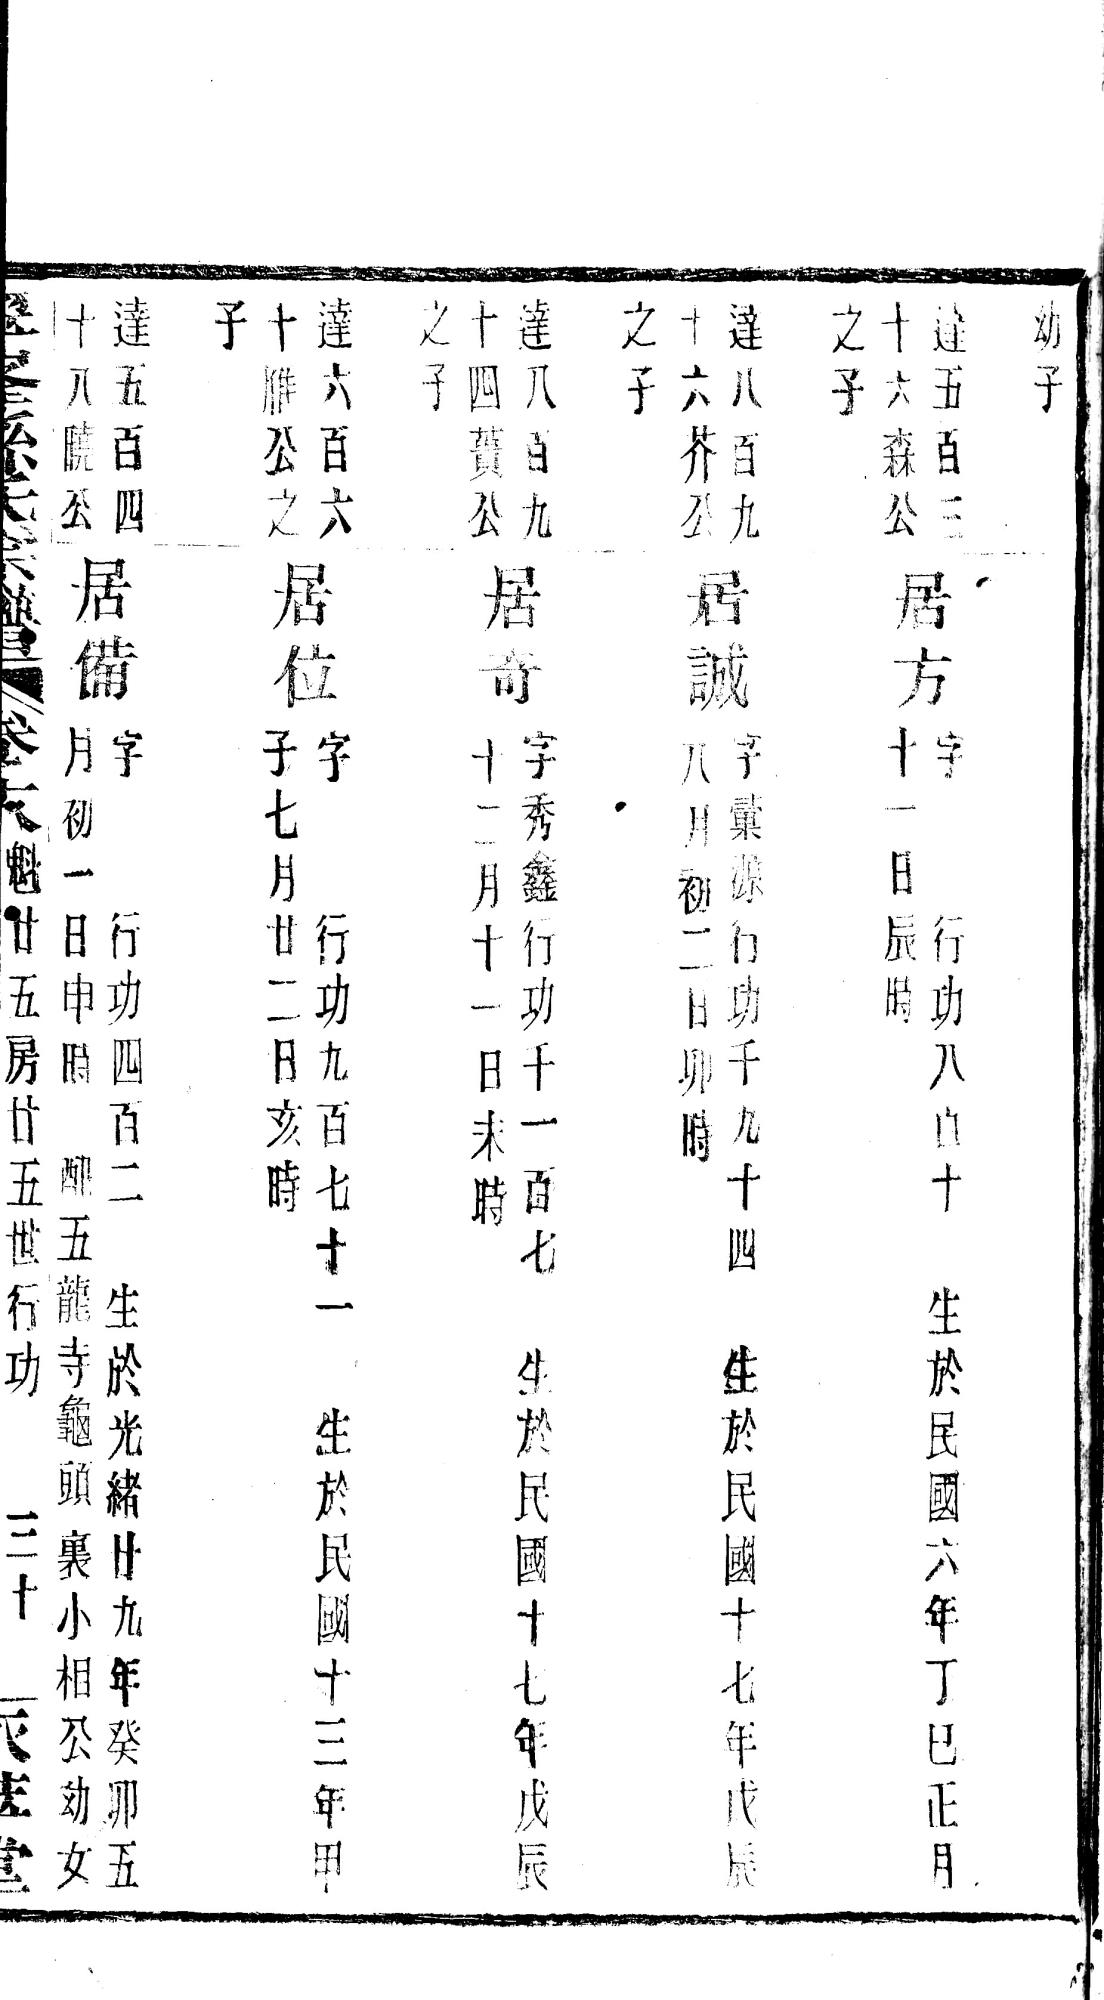 幼子
達五百三
十六森公
之子
居方
字 行功八百十 生於民國六年丁巳正月
十一日辰時
達八百九
十六芥公
之子
居誠
字業源行功千九十四 生於民國十七年戊辰
八月初二日卯時
達八百九
十四蕢公
之子
居奇
字秀鑫行功千一百七 生於民國十七年戊辰
十二月十一日未時
達六百六
十雕公之
子
居位
字 行功九百七十一 生於民國十三年甲
子七月廿二日亥時
達五百四
十八曉公
居備
字 行功四百二 生於光緒廿九年癸卯五
月初一日申時 配五龍寺龜頭裏小相公幼女
宗譜 卷六 魁廿五房廿五世行功 三十 堂